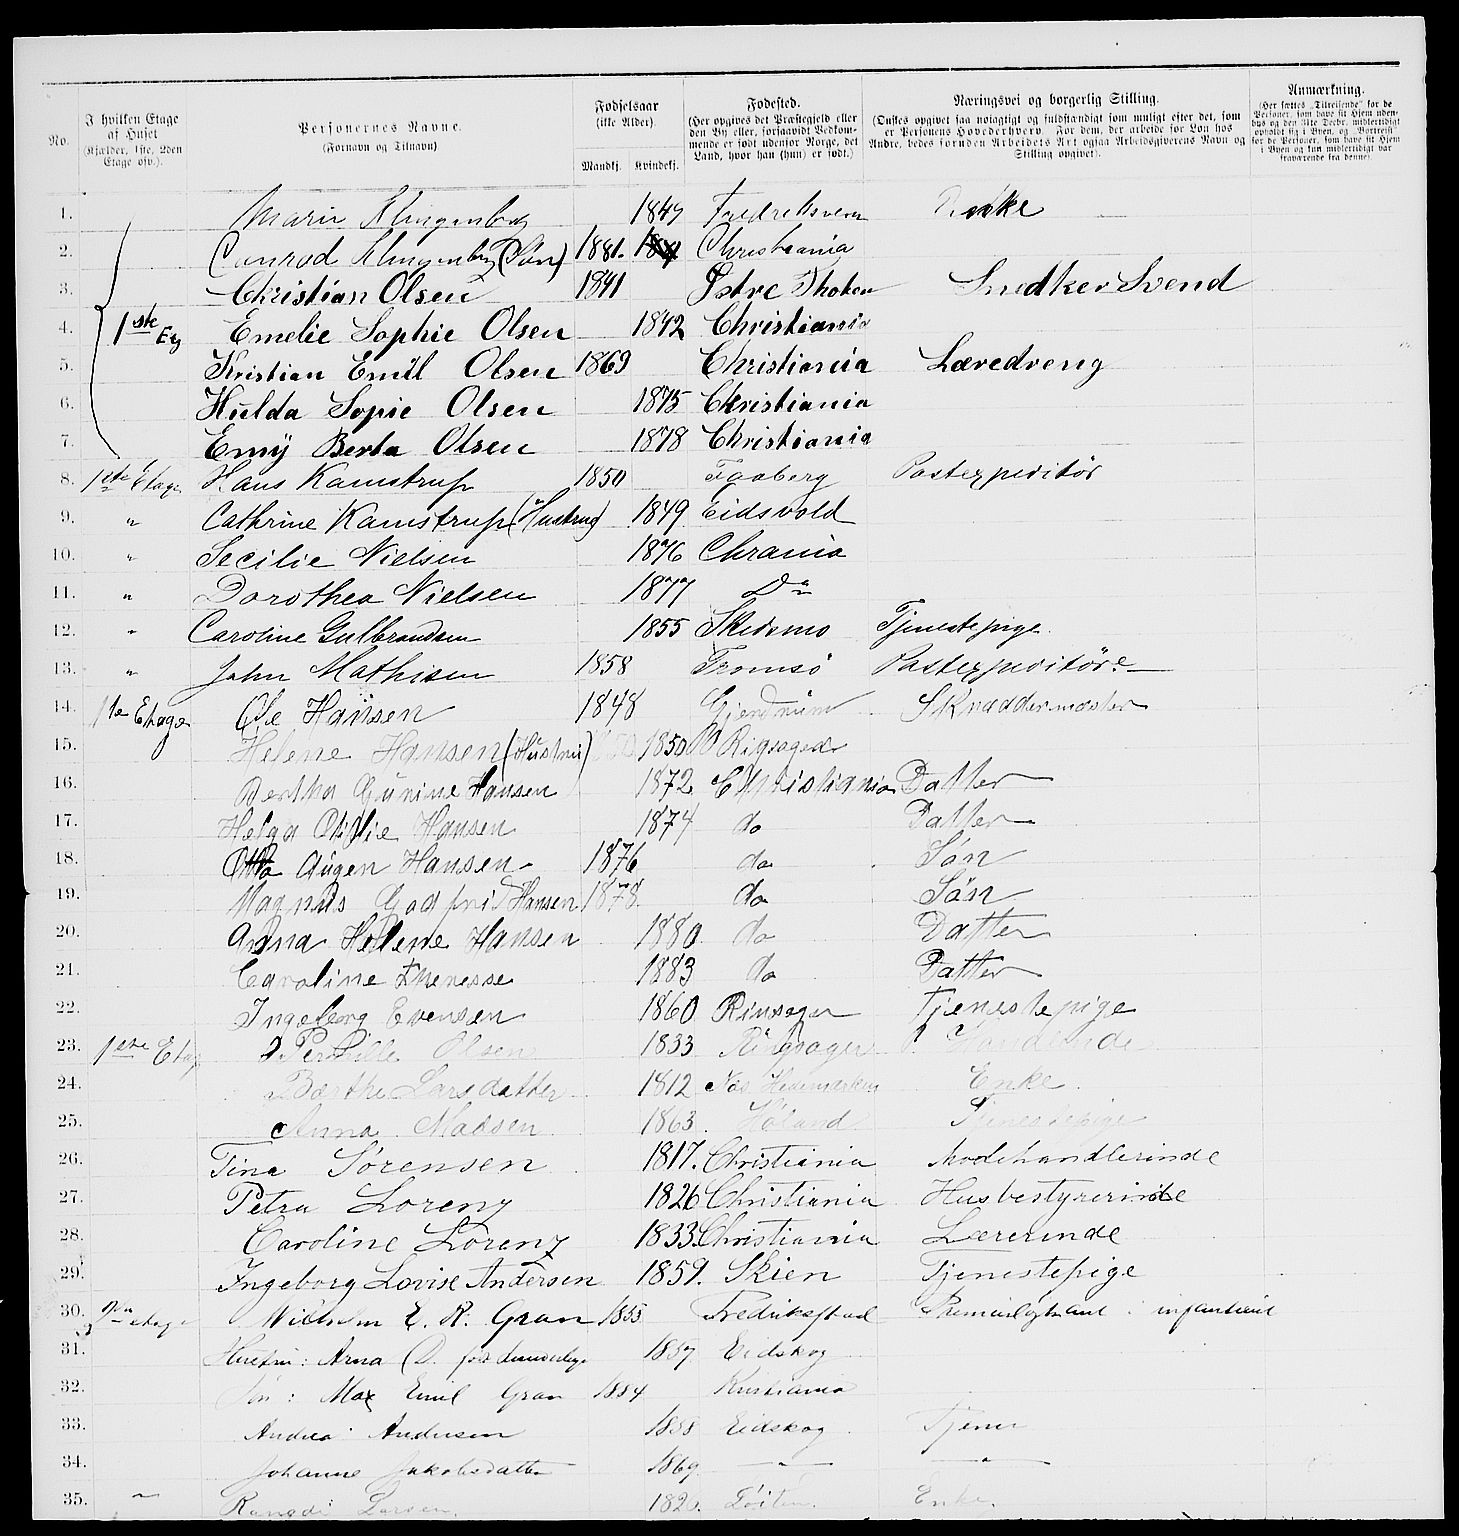 No. | I hvilken Etage af Huset (Kjælder, 1ste, 2den Etage osv.). | Personernes Navne. (Fornavn og Tilnavn) | Fødselsaar (ikke Alder). Mandkj. Kvindekj. | Fødested. (Her opgives det Præstegjeld eller den By eller, forsaavidt Vedkommende er født udenfor Norge, det Land, hvor han (hun) er født.) | Næringsvei og borgerlig Stilling. (Ønskes opgivet saa nøiagtigt og fuldstændigt som muligt efter det, som er Personens Hovederhverv. For dem, der arbeide for Løn hos Andre, bedes foruden Arbeidets Art ogsaa Arbeidsgiverens Navn og Stilling opgivet). | Anmærkning. (Her sættes „Tilreisende" for de Personer, som have sit Hjem udenbys og den 31te Decbr. midlertidigt opholdt sig i Byen, og „Bortreist" for de Personer, som have sit Hjem i Byen og kun midlertidigt var fraværende fra denne).
1. Marie Klingenberg 1847 Fredriksværn
2. Conrad Klingenberg (Søn) 1881. Christiania
3. Christian Olsen 1841 Østre Thoten Snedker Svend
4. 1ste Etg Emelie Sophie Olsen 1842 Christiania
5. Kristian Emil Olsen 1869 Christiania Læredreng
6. Hulda Sopie Olsen 1875 Christiania
7. Emÿ Berta Olsen 1878 Christiania
8. 1ste Etage Hans Kamstrup 1850 Faaberg Postexpeditør
9. " Cathrine Kamstrup (Hustru) 1849 Eidsvold
10. " Secilie Nielsen 1876 Chrania
11. " Dorothea Nielsen 1877 Do
12. " Caroline Gulbrandsen 1855 Skedsmo Tjenestepige
13. " John Mathisen 1858 Tromsø Postexpeditør
14. 1te Etage Ole Hansen 1848 Gjerdrum Skræddermester
15. Helene Hansen (Hustru) 1850 Rigsager
16. Bertha Gunine Hansen 1872 Christiania Datter
17. Helga Otilie Hansen 1874 do Datter
18. Otto Augen Hansen 1876 do Søn
19. Magnus Godfrid Hansen 1878 do Søn
20. Anna Helene Hansen 1880 do Datter
21. Caroline Theresse 1883 do Datter
22. Ingeborg Evensen 1860 Rinsager Tjenestepige
23. 1ste Etag Pernille Olsen 1833 Ringsager Handlende
24. Bærthe Larsdatter 1812 Næs Hedemarken Enke.
25. Anna Madsen 1863. Høland Tjenestepige
26. Tina Sørensen 1817. Christiania Modehandlerinde
27. Petra Lorenz 1826 Christiania Husbestyrerinde
28. Caroline Lorenz 1833. Christiania Lærerinde
29. Ingeborg Lovise Andersen 1859. Skien Tjenestepige
30. 2den etage Wilhelm E. R. Gran 1855 Fredriksstad Premierløitnant i infanteriet
31. Hustru: Anna O. født 1857 Eidskog
32. Søn: Max Emil Gran 1884 Kristiania
33. Andrea Andersen 1858 Eidskog Tjener
34. Johanne Jakobsdatter 1869 — " — — " —
35. " Rangdi Larsen. 1820. Løiten. Enke.